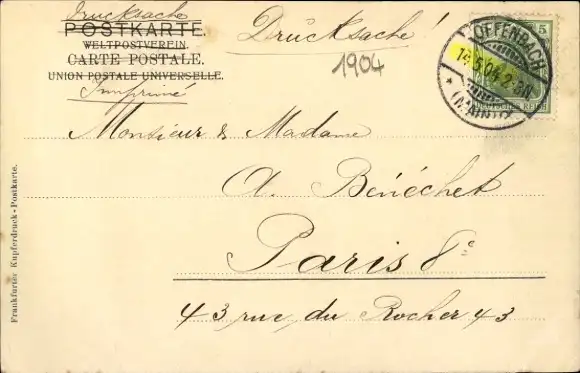 Drucksache
POSTKARTE.
WELTPOSTVEREIN.
CARTE POSTALE.
UNION POSTALE UNIVERSELLE.
Imprimé
Drucksache!
1904
5
OFFENBACH
14.5.04.2-3N.
* (MAIN) 1
DEUTSCHES REICH
Monsieur & Madame
A. Bénéchet
Paris 8e
43, rue du Rocher 43
Frankfurter Kupferdruck-Postkarte.